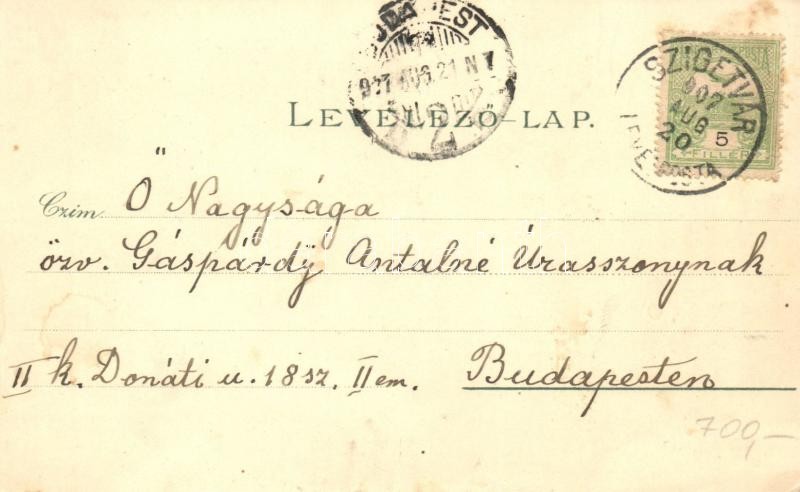 BUDAPEST
907 AUG. 21 N 7
SZIGETVÁR
907
AUG
20
LEVÉLPOSTA
5
FILLÉR
LEVELEZŐ-LAP.
Czim Ő Nagysága
özv. Gáspárdÿ Antalné Úrasszonynak
II k. Donáti u. 18 sz. II em. Budapesten
700,-